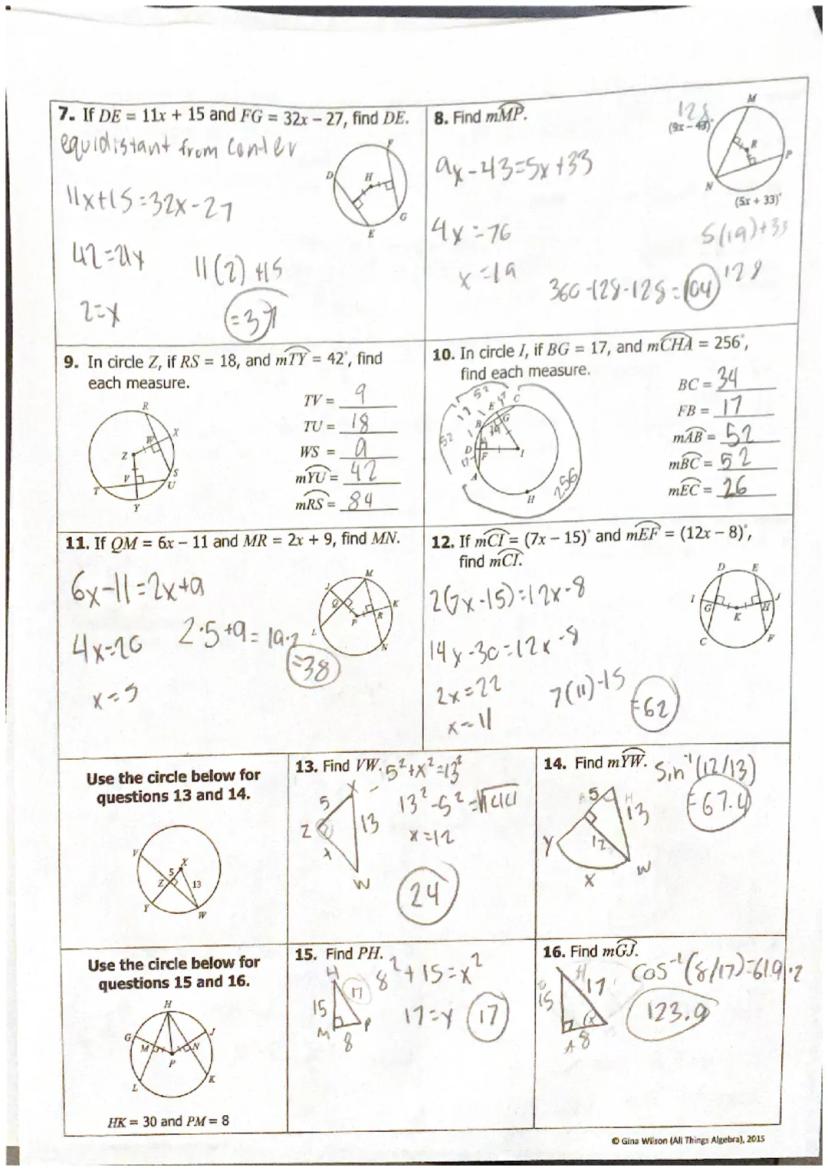 7. If DE = 11x + 15 and FG = 32x – 27, find DE.
equidistant from center
11x+15=32x-27
42=21x
11(2)+15
2=x
=37
D
H
F
G
E
8. Find mMP.
128
(9x – 43)°
M
R
P
N
(5x + 33)°
9x-43=5x+33
4x=76
x=19
5(19)+33
128
360-128-128=104
9. In circle Z, if RS = 18, and mTY = 42°, find
each measure.
R
W
X
Z
V
S
U
T
Y
TV = 9
TU = 18
WS = 9
mYU = 42
mRS = 84
10. In circle I, if BG = 17, and mCHA = 256°,
find each measure.
52
52
17
E
C
B
G
D
F
I
A
H
256
BC = 34
FB = 17
mAB = 52
mBC = 52
mEC = 26
11. If QM = 6x – 11 and MR = 2x + 9, find MN.
6x-11=2x+9
4x=20
2·5+9=19·2
=38
x=5
J
M
Q
K
P
R
L
N
12. If mCI = (7x – 15)° and mEF = (12x – 8)°,
find mCI.
2(7x-15)=12x-8
14x-30=12x-8
2x=22
7(11)-15
=62
x=11
D
E
I
G
H
J
K
C
F
Use the circle below for
questions 13 and 14.
V
X
5
Z
13
Y
W
13. Find VW.
5²+x²=13²
13²-5²=√144
x=12
24
5
X
Z
13
x
W
14. Find mYW.
Sin⁻¹(12/13)
=67.4
5
13
12
Y
W
X
Use the circle below for
questions 15 and 16.
H
G
J
M
N
P
L
K
HK = 30 and PM = 8
15. Find PH.
8²+15=x²
17=x
17
H
17
15
M
P
8
16. Find mGJ.
cos⁻¹(8/17)=61.9·2
123.9
H
17
15
A
8
© Gina Wilson (All Things Algebra), 2015